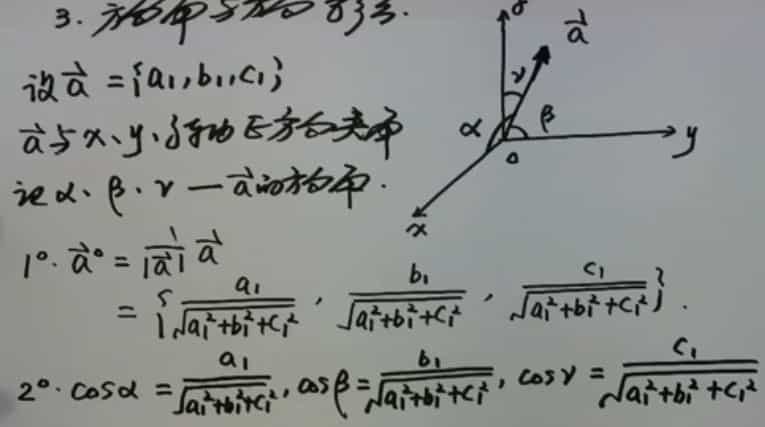 3. 方向角与方向余弦.
设 a⃗ = {a₁, b₁, c₁}
a⃗与 x、y、z轴正方向夹角
记 α、β、γ — a⃗的方向角.
1°. a⃗° = 1/|a⃗| a⃗
= {a₁/√(a₁²+b₁²+c₁²), b₁/√(a₁²+b₁²+c₁²), c₁/√(a₁²+b₁²+c₁²)}.
2°. cosα = a₁/√(a₁²+b₁²+c₁²), cosβ = b₁/√(a₁²+b₁²+c₁²), cosγ = c₁/√(a₁²+b₁²+c₁²)
z
a⃗
γ
α
β
o
y
x